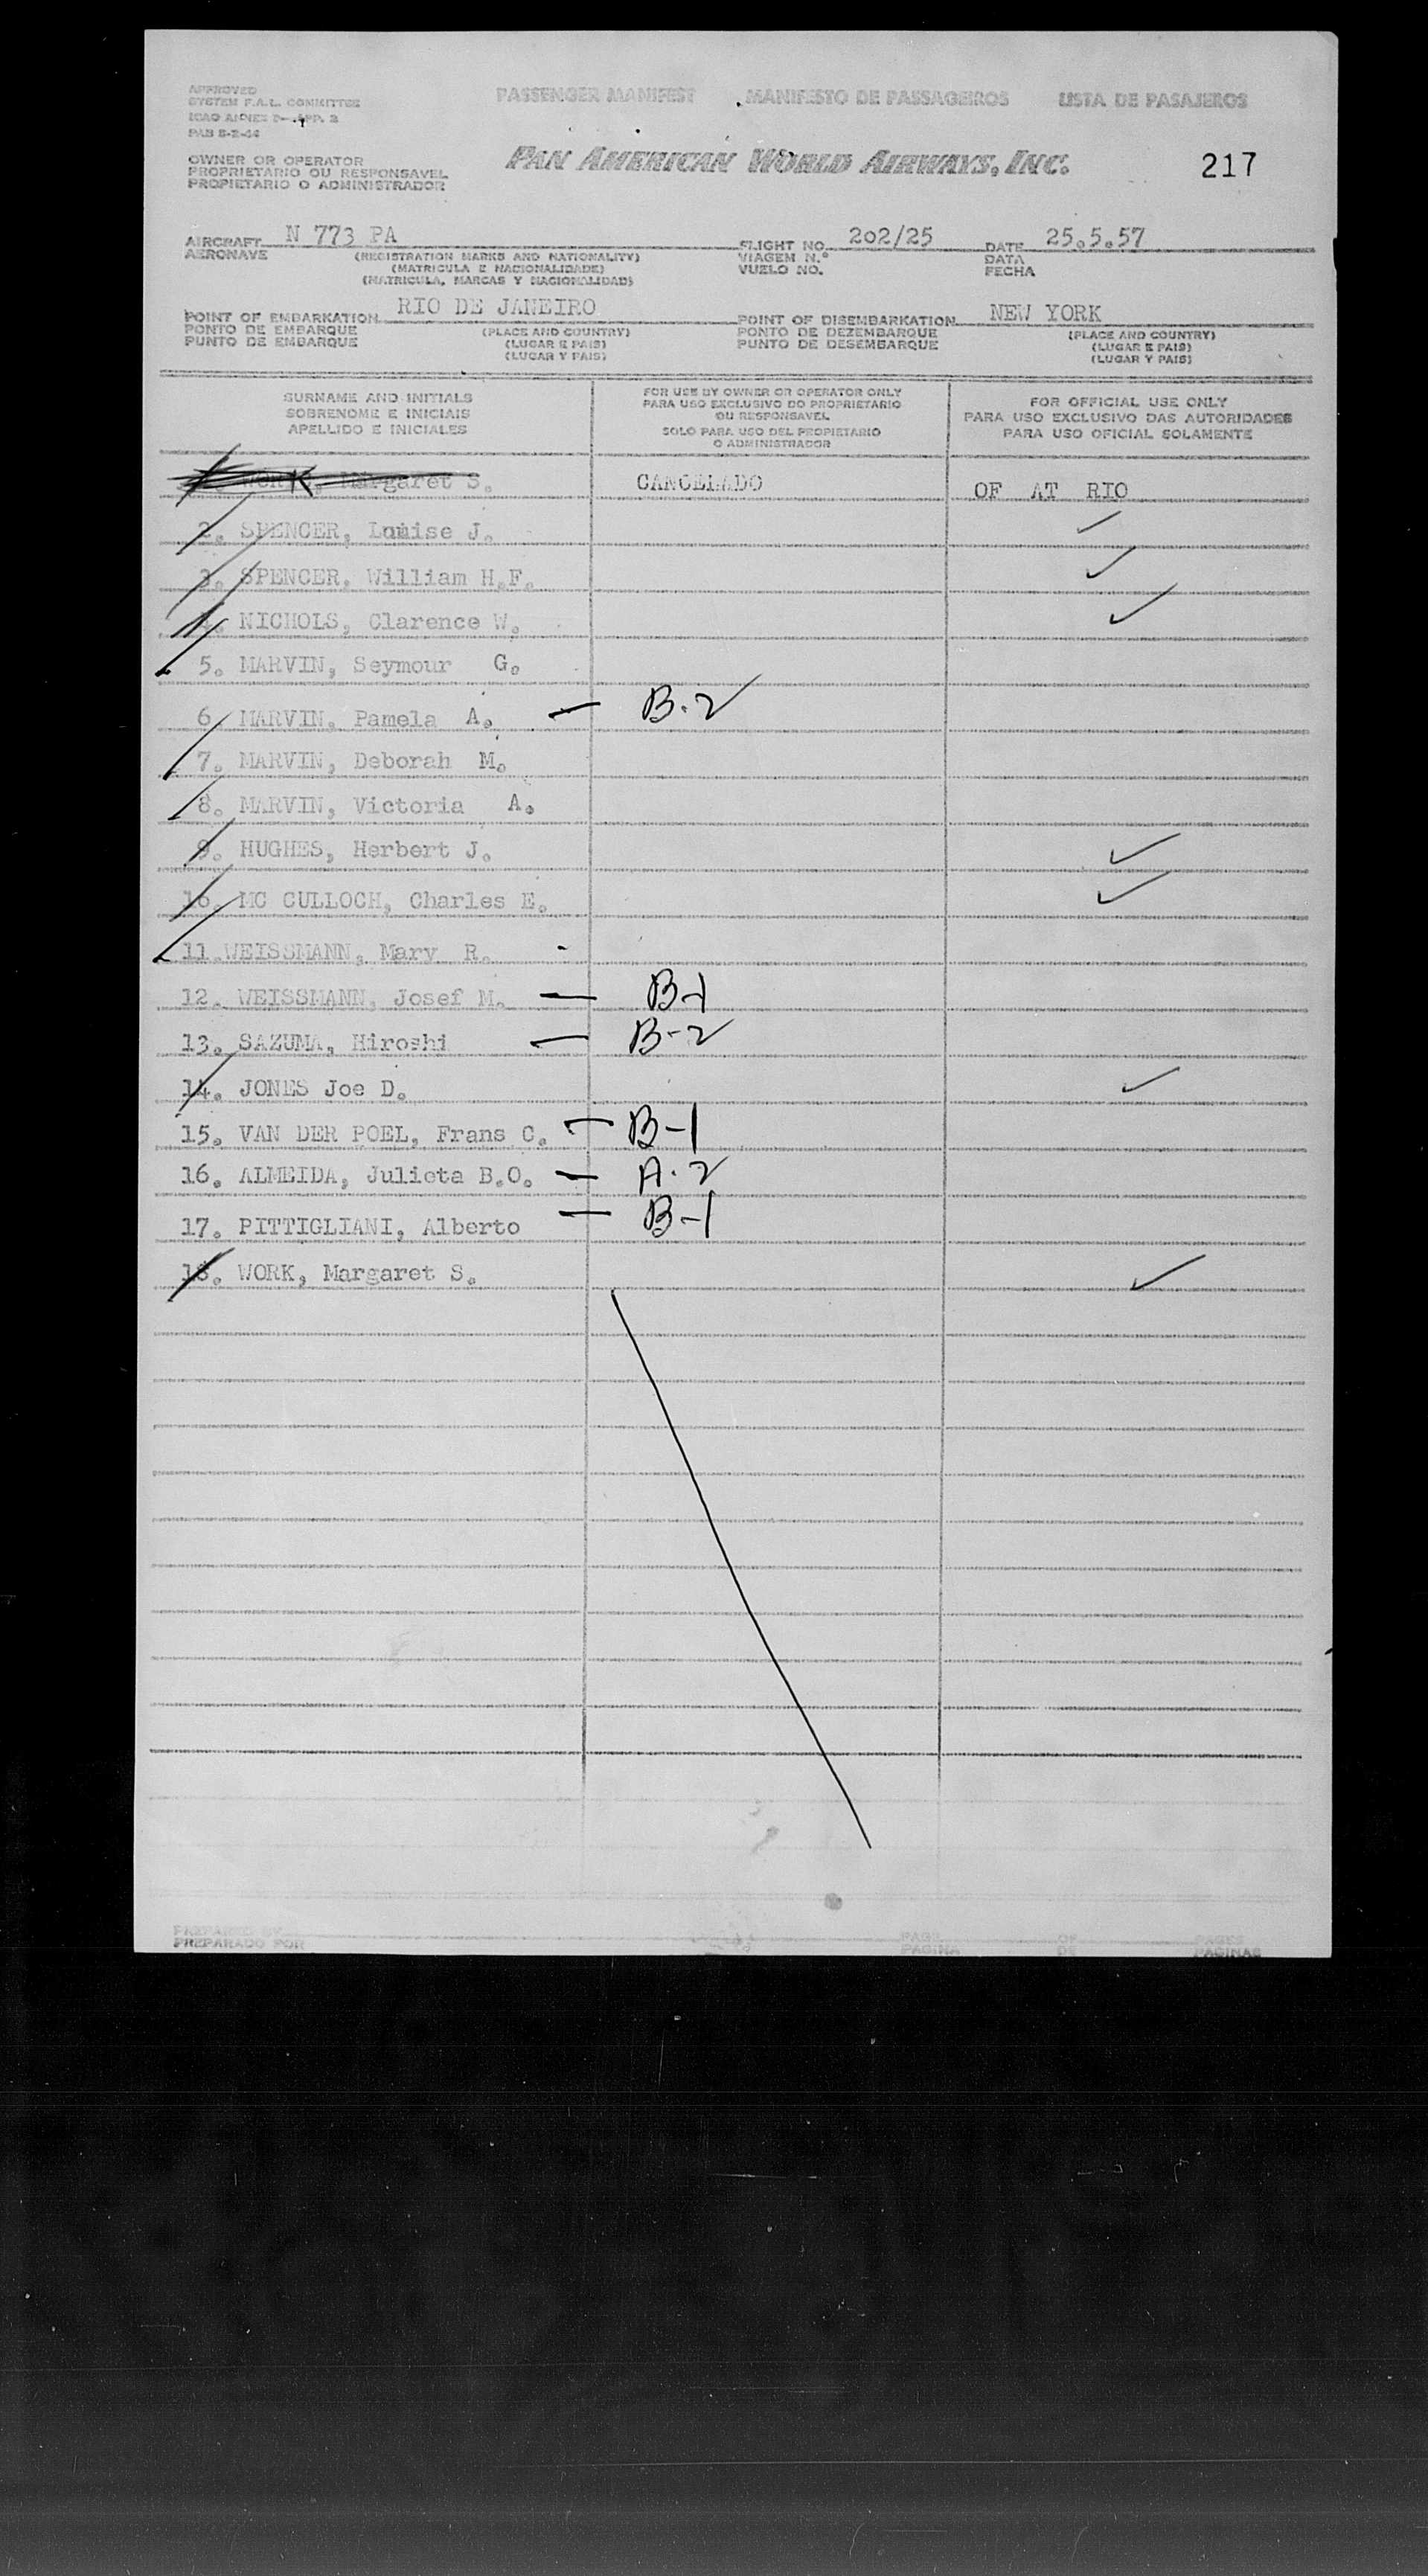 APPROVED
SYSTEM F.A.L. COMMITTEE
ICAO ANNEX 9—APP. 3
PAB 8-2-44
PASSENGER MANIFEST MANIFESTO DE PASSAGEIROS LISTA DE PASAJEROS
OWNER OR OPERATOR
PROPRIETARIO OU RESPONSAVEL
PROPIETARIO O ADMINISTRADOR
PAN AMERICAN WORLD AIRWAYS, INC.
217
AIRCRAFT N 773 PA FLIGHT NO. 202/25 DATE 25.5.57
AERONAVE (REGISTRATION MARKS AND NATIONALITY) VIAGEM N.° DATA
(MATRICULA E NACIONALIDADE) VUELO NO. FECHA
(MATRICULA, MARCAS Y NACIONALIDAD)
POINT OF EMBARKATION RIO DE JANEIRO POINT OF DISEMBARKATION NEW YORK
PONTO DE EMBARQUE (PLACE AND COUNTRY) PONTO DE DEZEMBARQUE (PLACE AND COUNTRY)
PUNTO DE EMBARQUE (LUGAR E PAIS) PUNTO DE DESEMBARQUE (LUGAR E PAIS)
(LUGAR Y PAIS) (LUGAR Y PAIS)
SURNAME AND INITIALS
SOBRENOME E INICIAIS
APELLIDO E INICIALES
FOR USE BY OWNER OR OPERATOR ONLY
PARA USO EXCLUSIVO DO PROPRIETARIO
OU RESPONSAVEL
SOLO PARA USO DEL PROPIETARIO
O ADMINISTRADOR
FOR OFFICIAL USE ONLY
PARA USO EXCLUSIVO DAS AUTORIDADES
PARA USO OFICIAL SOLAMENTE
WORK, Margaret S. CANCELADO OF AT RIO
2. SPENCER, Louise J. ✓
3. SPENCER, William H.F. ✓
4. NICHOLS, Clarence W. ✓
5. MARVIN, Seymour G.
6. MARVIN, Pamela A. — B-2
7. MARVIN, Deborah M.
8. MARVIN, Victoria A.
9. HUGHES, Herbert J. ✓
10. MC CULLOCH, Charles E. ✓
11. WEISSMANN, Mary R. -
12. WEISSMANN, Josef M. — B-1
13. SAZUMA, Hiroshi — B-2
14. JONES Joe D. ✓
15. VAN DER POEL, Frans C. — B-1
16. ALMEIDA, Julieta B.O. — A-2
17. PITTIGLIANI, Alberto — B-1
18. WORK, Margaret S. ✓
PREPARED BY PAGE OF PAGES
PREPARADO POR PAGINA DE PAGINAS